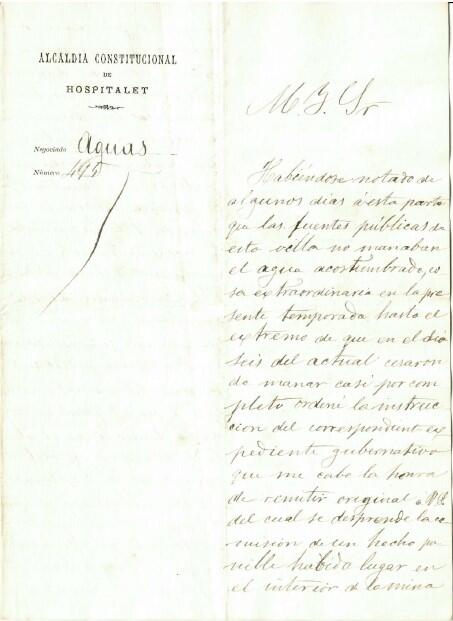 ALCALDIA CONSTITUCIONAL
DE
HOSPITALET
Negociado Aguas
Número 495
M. I. Sr
Habiéndose notado de
algunos dias á esta parte
que las fuentes públicas de
esta villa no manaban
el agua acostumbrado, co
sa extraordinaria en la pre
sente temporada hasta el
extremo de que en el dia
seis del actual cesaron
de manar casi por com
pleto ordené la instruc
cion del correspondiente ex
pediente gubernativo
que me cabe la honra
de remitir original a V.S.
del cual se desprende la co
misión de un hecho pu
nible habido lugar en
el interior de la mina